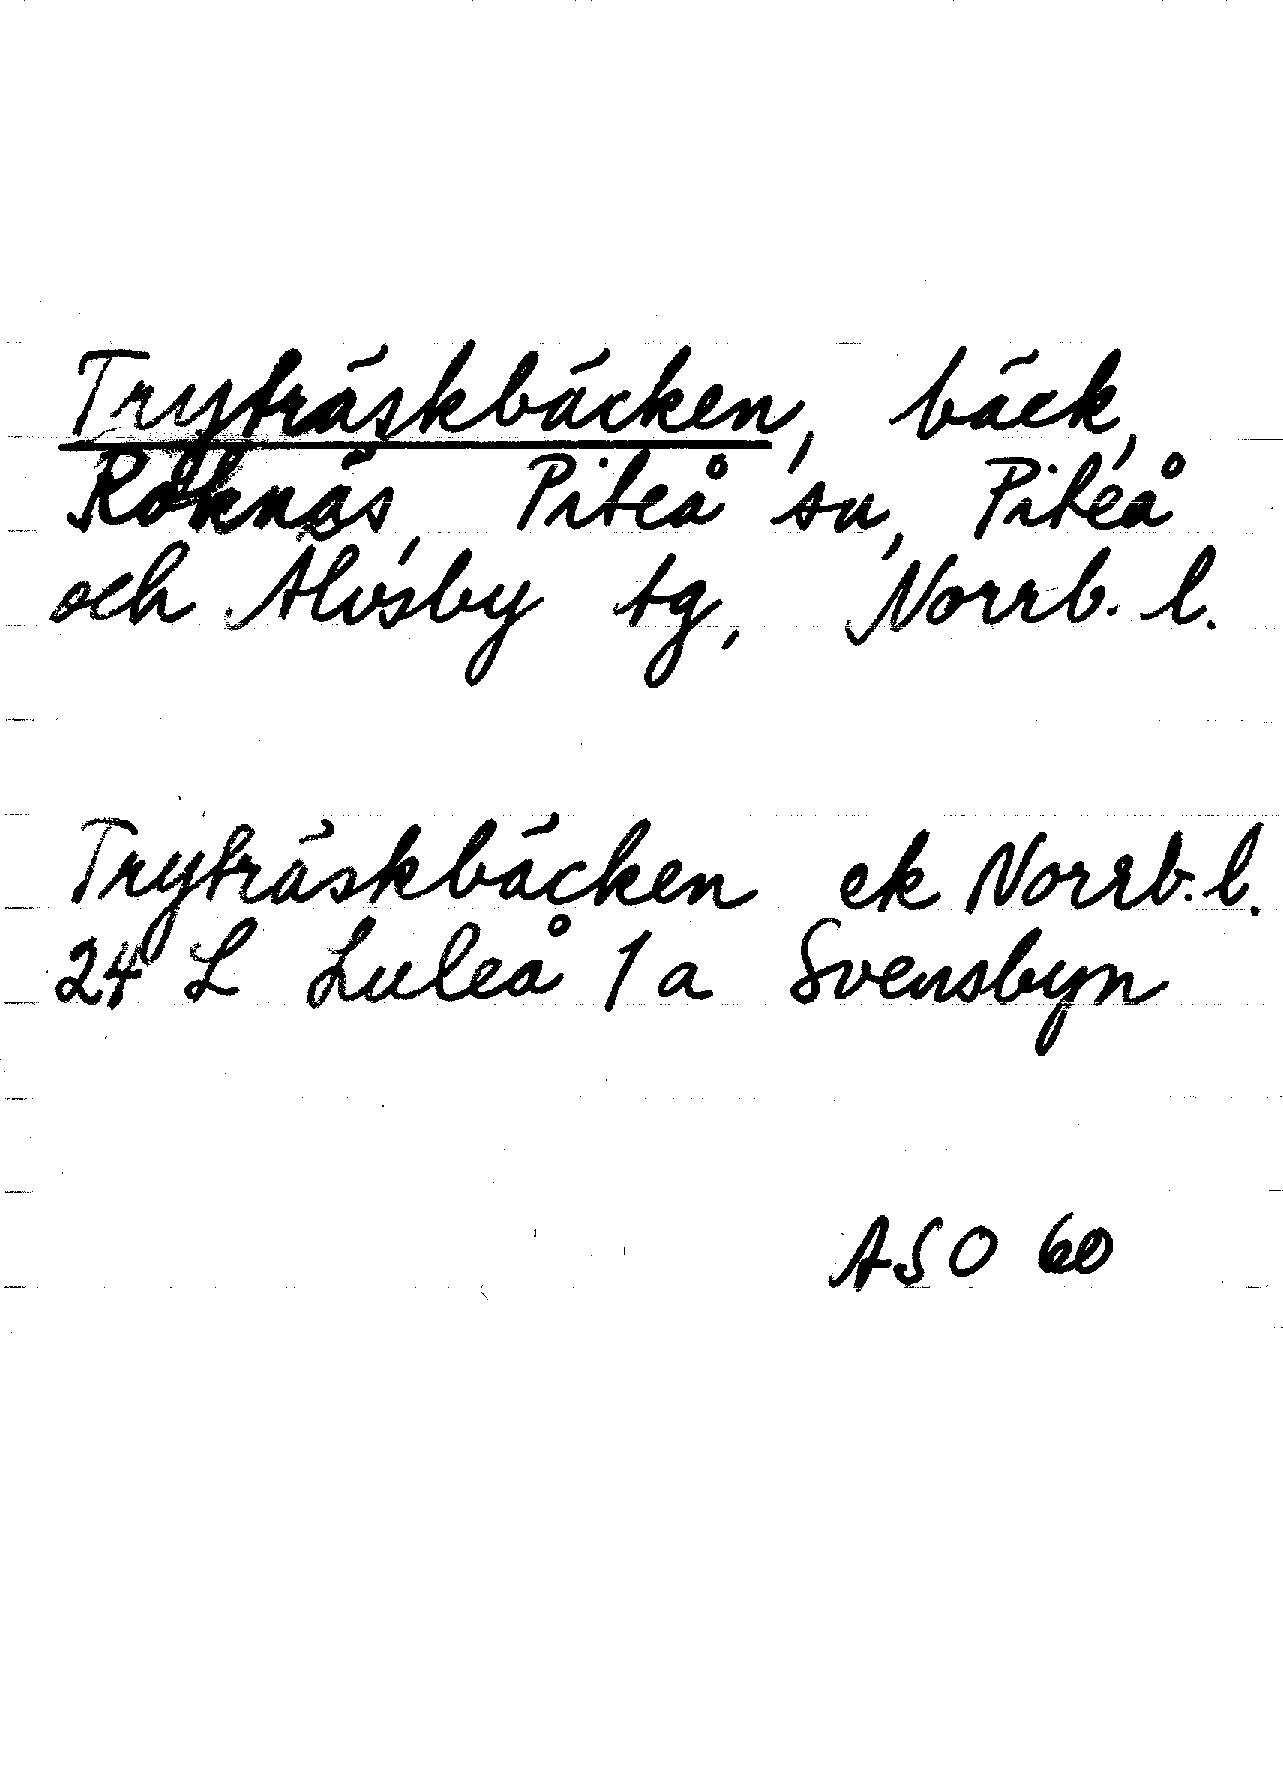 Tryträskbäcken, bäck,
Roknäs, Piteå sn, Piteå
och Älvsby tg, Norrb. l.
Tryträskbäcken ek Norrb. l.
24 L Luleå 1 a Svensbyn
ASO 60